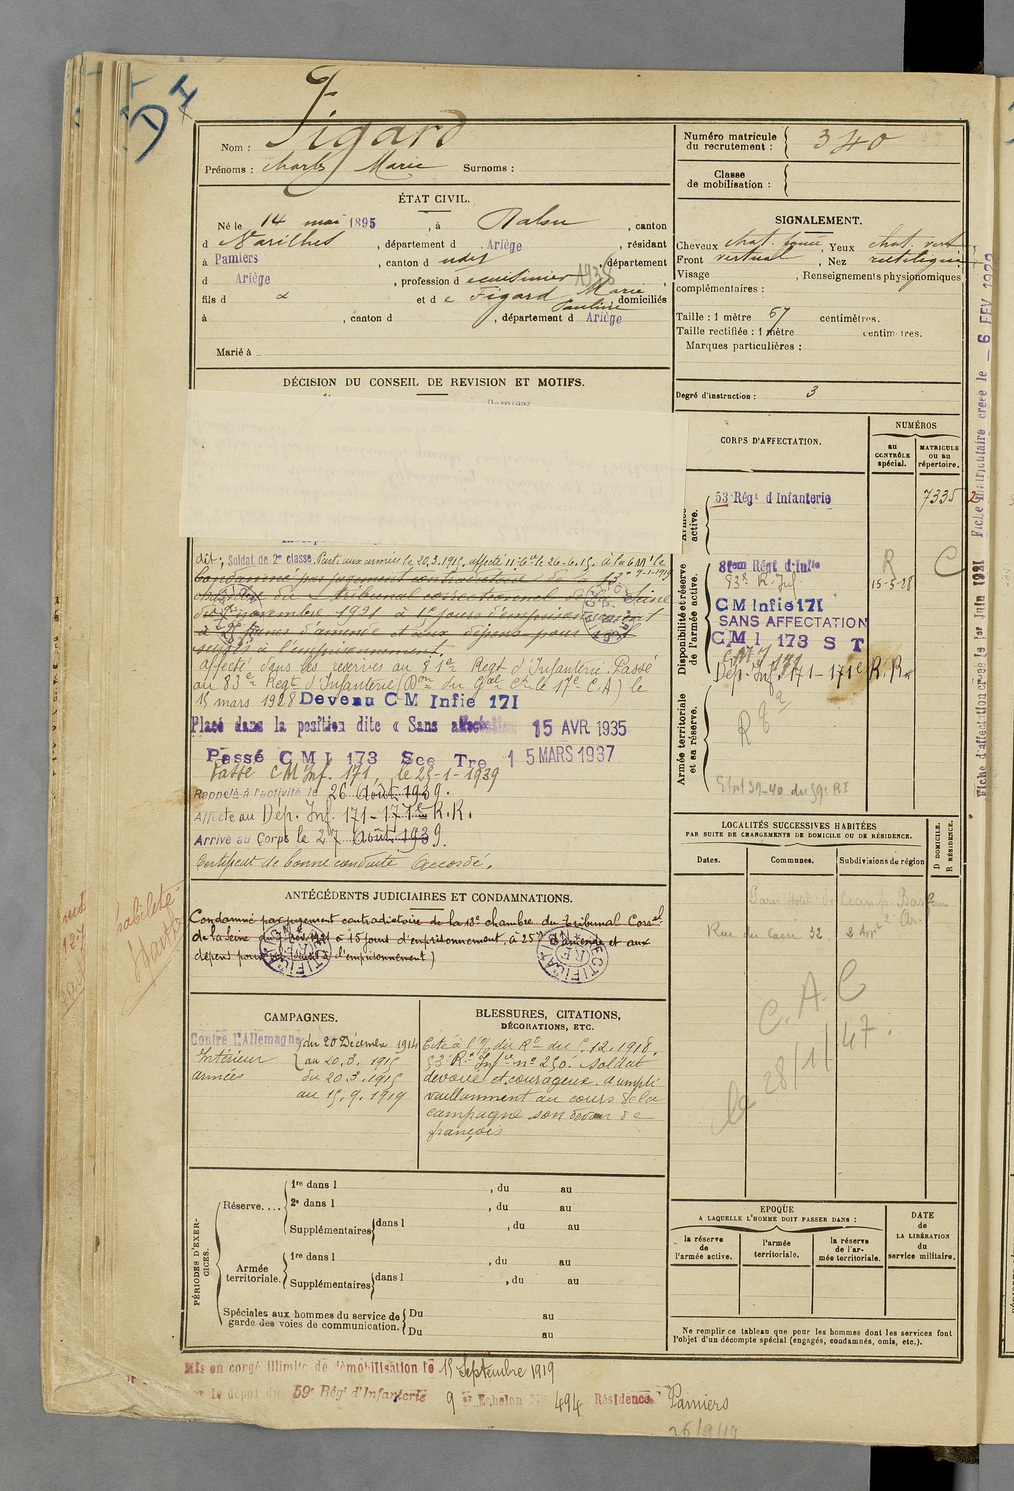 F.
Nom : Figard
Prénoms : Charles Marie Surnoms :
Numéro matricule du recrutement : 340
Classe de mobilisation :
ÉTAT CIVIL.
Né le 14 mai 1895, à Dalou, canton
d Varilhes, département d Ariège, résidant
à Pamiers, canton d udit, département
d Ariège, profession d cuisinier
fils d et de Figard Marie Pauline, domiciliés
à , canton d , département d Ariège
Marié à
SIGNALEMENT.
Cheveux chat. foncé, Yeux chat. vert
Front vertical, Nez rectiligne
Visage , Renseignements physionomiques
complémentaires :
Taille : 1 mètre 67 centimètres.
Taille rectifiée : 1 mètre centimètres.
Marques particulières :
Degré d'instruction : 3
DÉCISION DU CONSEIL DE REVISION ET MOTIFS.
dit ; Soldat de 2e classe. Parti aux armées le 20.3.1915,
Condamné par jugement contradictoire de la 13e
chambre du tribunal correctionnel de la Seine
du 7 novembre 1921 à 15 jours d'emprisonnement
à 25 francs d'amende et aux dépens pour
à l'emprisonnement.
affecté dans les réserves au 81e Regt d'Infanterie. Passé
au 83e Regt d'Infanterie (Don du Gal Ct le 17e C.A) le
15 mars 1928 Devenu CM Infie 171
Placé dans la position dite « Sans affectation 15 AVR 1935
Passé CMI 173 See Tre 15 MARS 1937
Passé CM Inf. 171, le 25-1-1939
Rappelé à l'activité le 26 Août 1939.
Affecté au Dép. Inf. 171-171e R.R.
Arrivé au Corps le 27 Août 1939.
Certificat de bonne conduite Accordé.
CORPS D'AFFECTATION.
NUMÉROS
au CONTRÔLE spécial.
MATRICULE OU AU répertoire.
active.
53e Régt d'Infanterie 7335
Disponibilité et réserve de l'armée active.
81em Régt d'Infie
83e R. Inf
R C
15-5-28
CM Infie 171
SANS AFFECTATION
CMI 173 ST
Dép. Inf. 171-171e R.R.
Armée territoriale et sa réserve.
LOCALITÉS SUCCESSIVES HABITÉES
PAR SUITE DE CHANGEMENTS DE DOMICILE OU DE RÉSIDENCE.
Dates. Communes. Subdivisions de région
D DOMICILE. R RÉSIDENCE.
Rue du Caire 32. 2 Arrt
C.A.C
le 28/1/47.
ANTÉCÉDENTS JUDICIAIRES ET CONDAMNATIONS.
Condamné par jugement contradictoire de la 13e chambre du Tribunal Corel
de la Seine du 7 Nov. 1921 à 15 jours d'emprisonnement, à 25f d'amende et aux
dépens d'emprisonnement)
CAMPAGNES.
Contre l'Allemagne du 20 Décembre 1914
Intérieur au 20.3.1915
armées du 20.3.1915
au 15.9.1919
BLESSURES, CITATIONS,
DÉCORATIONS, ETC.
Cité à l'o/ du Rt du 5.12.1918.
53e Rt Infie no 250. Soldat
dévoué et courageux. a rempli
vaillamment au cours de la
campagne son devoir de
français
PÉRIODES D'EXERCICES.
Réserve....
1re dans l , du au
2e dans l , du au
Supplémentaires dans l , du au
Armée territoriale.
1re dans l , du au
Supplémentaires dans l , du au
Spéciales aux hommes du service de garde des voies de communication.
Du au
Du au
EPOQUE
A LAQUELLE L'HOMME DOIT PASSER DANS :
la réserve de l'armée active.
l'armée territoriale.
la réserve de l'armée territoriale.
DATE de LA LIBÉRATION du service militaire.
Ne remplir ce tableau que pour les hommes dont les services font
l'objet d'un décompte spécial (engagés, condamnés, omis, etc.).
Mis en congé illimité de démobilisation le 15 Septembre 1919
le dépôt du 59e Régt d'Infanterie 9 Echelon No 494 Résidence Pamiers
26/9/19
Fiche matriculaire créée le 6 FEV
Fiche d'affectation créée le 1er Juin 1921